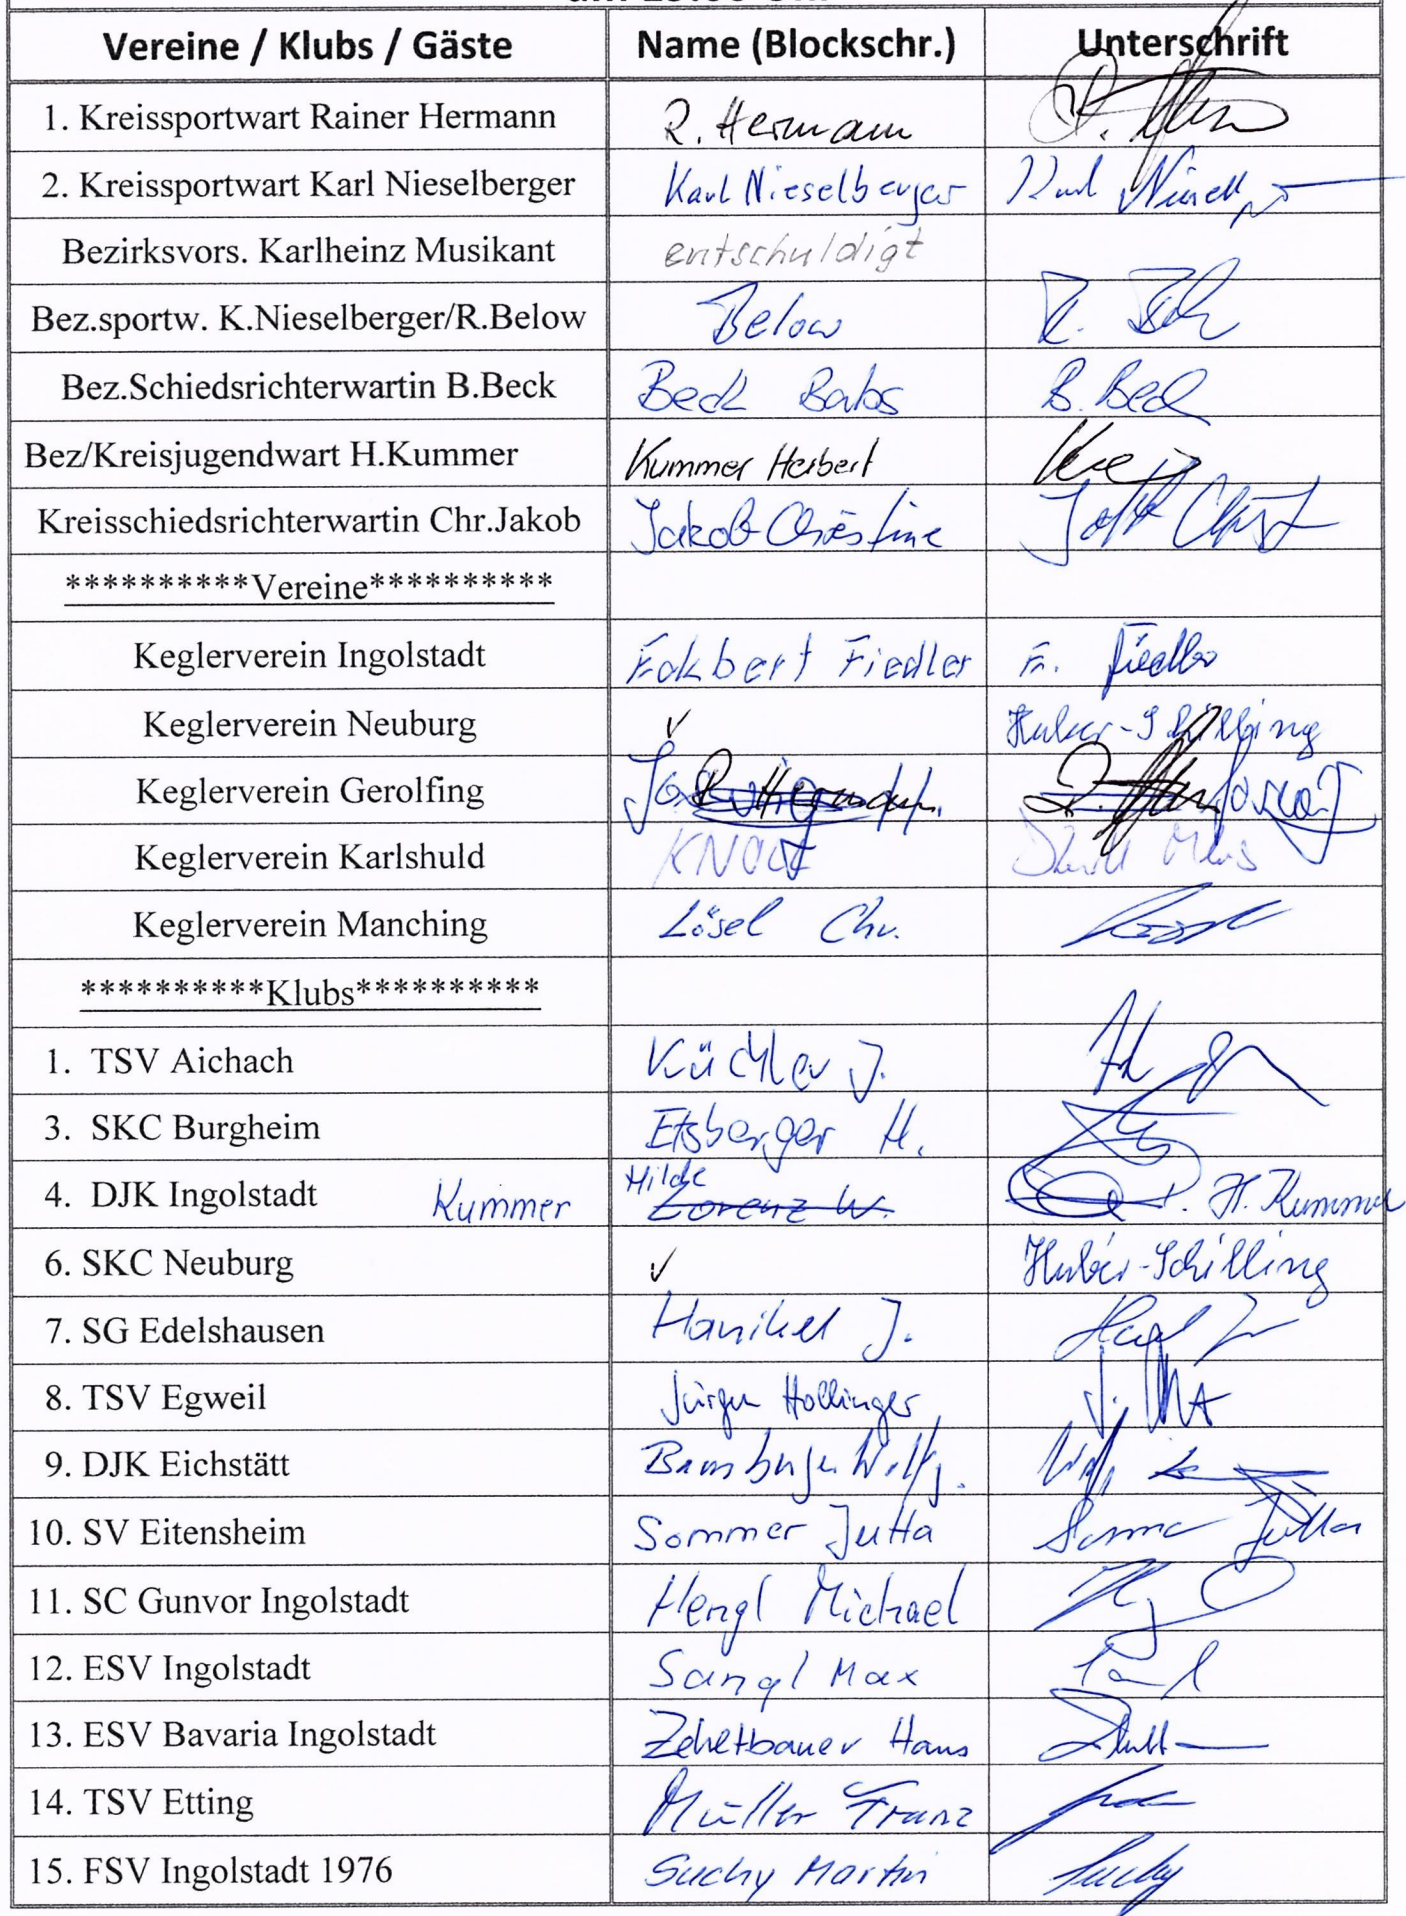 Vereine / Klubs / Gäste Name (Blockschr.) Unterschrift
1. Kreissportwart Rainer Hermann R. Hermann
2. Kreissportwart Karl Nieselberger Karl Nieselberger Karl
Bezirksvors. Karlheinz Musikant entschuldigt
Bez.sportw. K.Nieselberger/R.Below Below R.
Bez.Schiedsrichterwartin B.Beck Beck Babs B. Beck
Bez/Kreisjugendwart H.Kummer Kummer Herbert
Kreisschiedsrichterwartin Chr.Jakob Jakob Christine
**********Vereine**********
Keglerverein Ingolstadt Eckbert Fiedler E. Fiedler
Keglerverein Neuburg ✓ Huber-Schilling
Keglerverein Gerolfing R. Hermann
Keglerverein Karlshuld
Keglerverein Manching Lösel Chr.
**********Klubs**********
1. TSV Aichach Küchler J.
3. SKC Burgheim H.
4. DJK Ingolstadt Kummer Hilde Lorenz W. H. Kummer
6. SKC Neuburg ✓ Huber-Schilling
7. SG Edelshausen Hanikel J.
8. TSV Egweil Jürgen Hollinger
9. DJK Eichstätt
10. SV Eitensheim Sommer Jutta Sommer Jutta
11. SC Gunvor Ingolstadt Hengl Michael
12. ESV Ingolstadt Sangl Max
13. ESV Bavaria Ingolstadt Zehetbauer Hans
14. TSV Etting Müller Franz
15. FSV Ingolstadt 1976 Suchy Martin Suchy